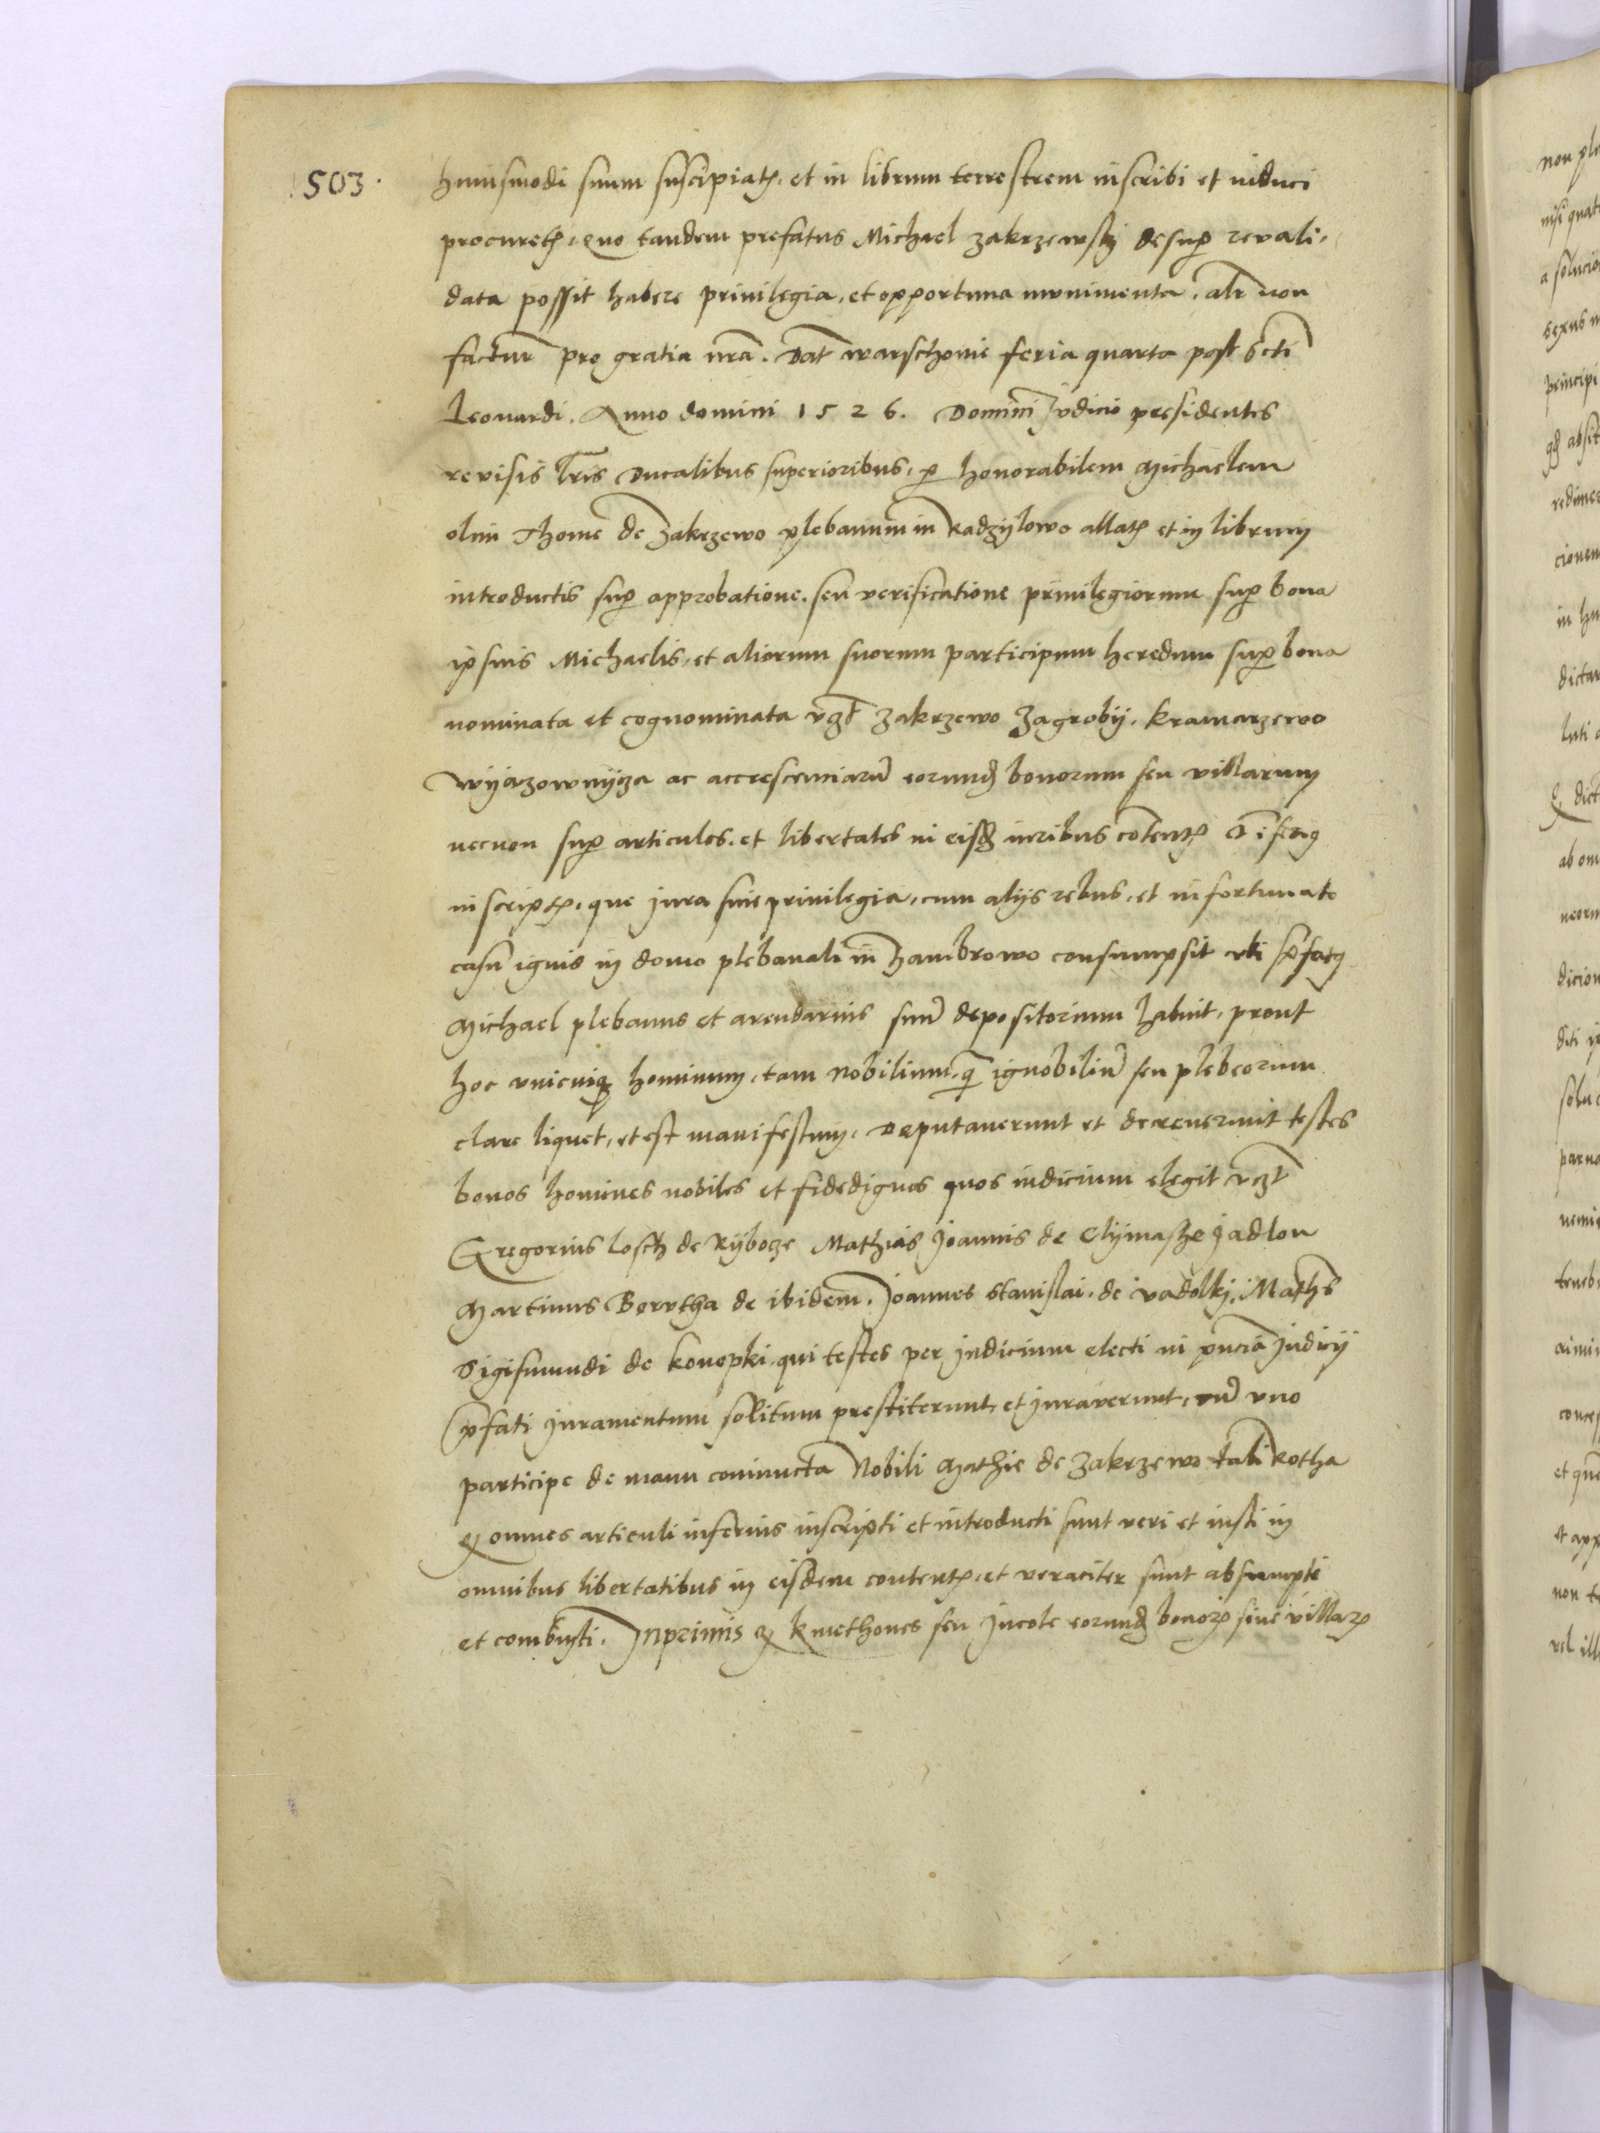 503.
huiusmodi suum suscipiatis, et in librum terrestrem inscribi et induci
procuretis, quo tandem prefatus Michael zakrzewskj desup revali-
data possit habere privilegia, et opportuna munimenta, alr non
factur pro gratia nra. Dat warschovie feria quarta post scti
Leonardi. Anno domini 1526. Domini Judicio presidentes
revisis lris Ducalibus superioribus, p honorabilem Michaelem
olim Thome de Zakrzewo plebanum in Radzijlowo allatis et in librum
introductis sup approbatione, seu verificatione privilegiorum sup bona
ipsius Michaelis, et aliorum suorum participum heredum sup bona
nominata et cognominata vzt Zakrzewo Zagrobij, Kramarzewo
wijazownijza ac accrescenciarum eorund bonorum seu villarum
necnon sup articulos, et libertates in eisd iuribus contentis
inscriptis, que jura sive privilegia, cum alijs rebus, et infortunato
casu ignis in domo plebanali in Zambrowo consumpsit ubi pfatus
Michael plebanus et arendarius suum depositorium habuit, prout
hoc unicuique hominum, tam nobilium, q ignobilium seu plebeorum
clare liquet, et est manifestum, Deputaverunt et decreverunt testes
bonos homines nobiles et fidedignos quos iudicium elegit vczt
Gregorius Losch de Rijbocze Mathias Joannis de Clijmasze Jadlon
Martinus Borutha de ibidem, Joannes Stanislai, de vadolkj, Maths
Sigismundi de Konopki, qui testes per judicium electi in pncia Judicij
pfati juramentum solitum prestiterunt, et juraverunt, cum uno
participe de manu coniuncta Nobili Mathie de Zakrzewo tali Rotha
q omnes articuli inferius inscripti et introducti sunt veri et iusti in
omnibus libertatibus in eisdem contentis, et veraciter sunt absumpti
et combusti. Inprimis q kmethones seu Incole eorund bonorum sive villarum